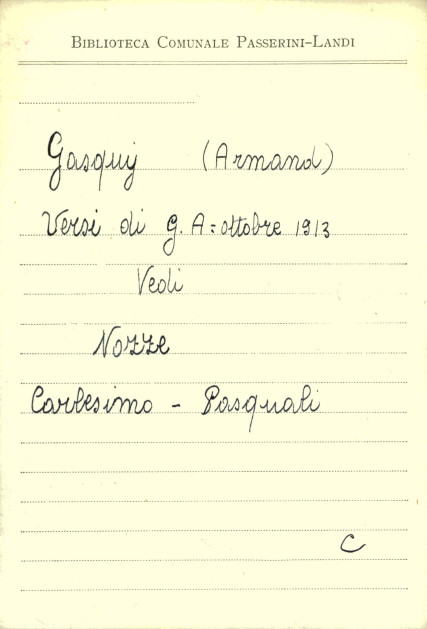 BIBLIOTECA COMUNALE PASSERINI-LANDI
Gasquij (Armand)
Versi di G. A: ottobre 1913
Vedi
Nozze
Carlesimo - Pasquali
C